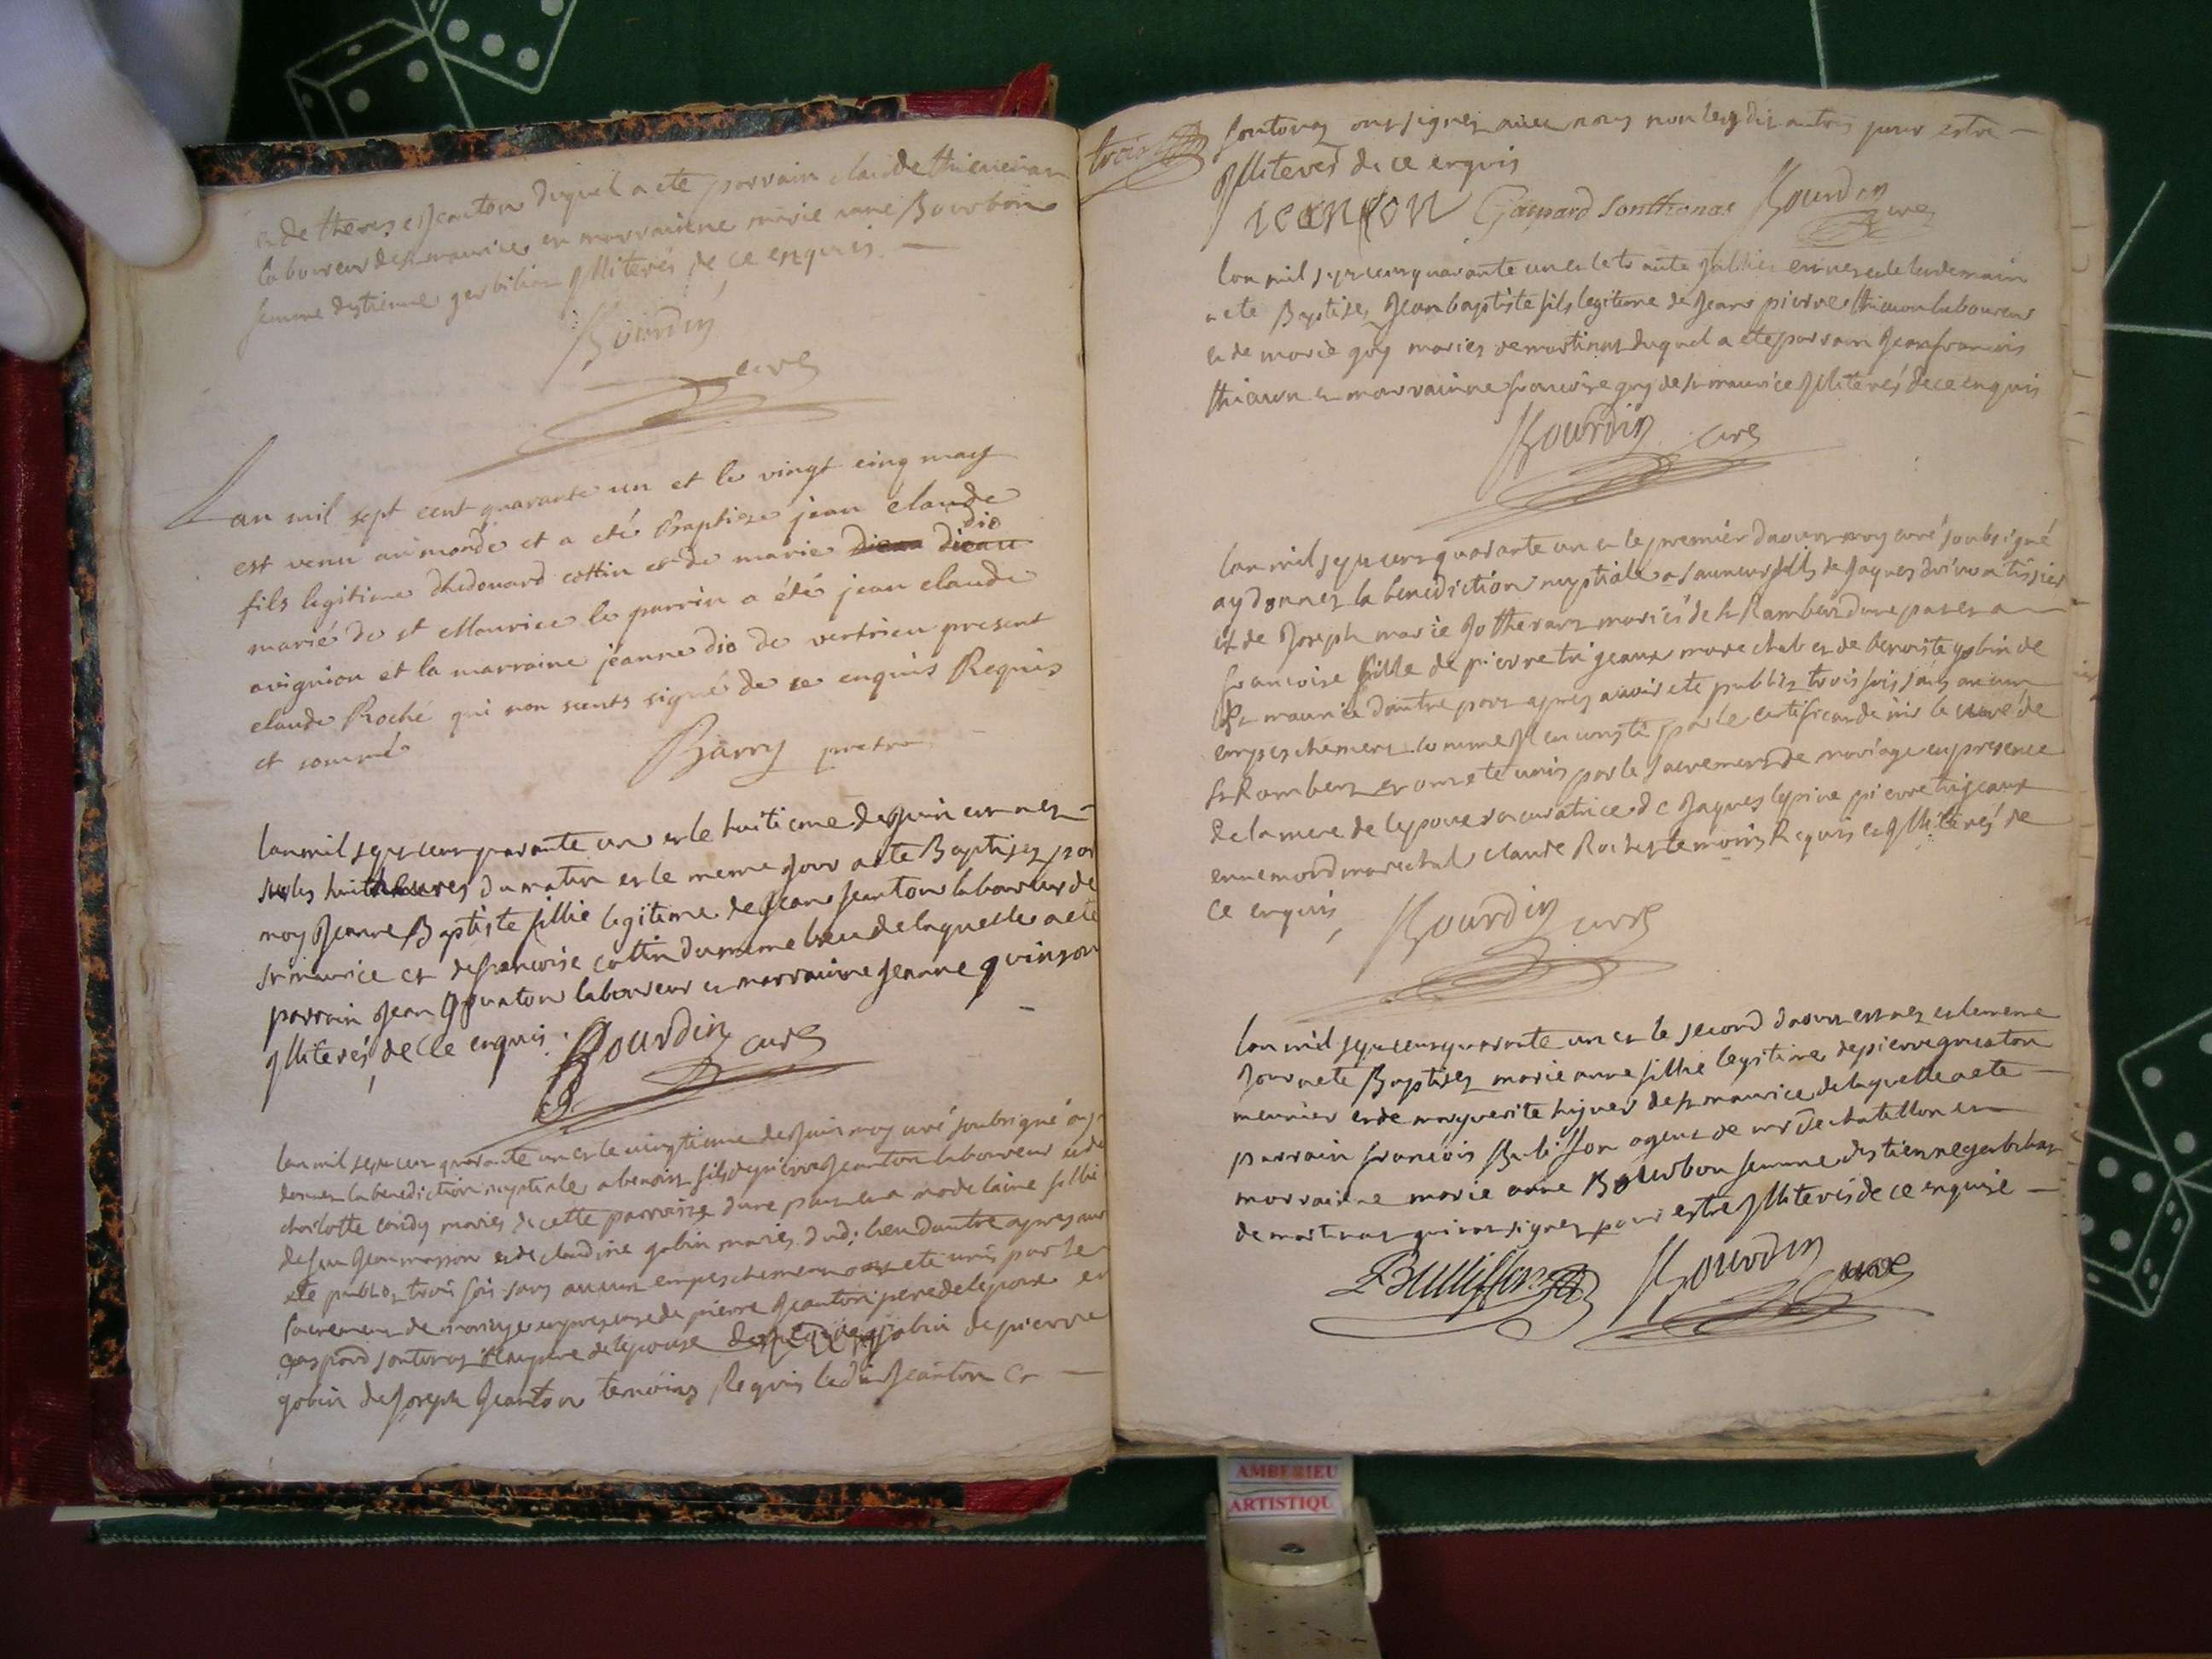 et de therese Jeanton duquel a ete parrain claude
laboureur de st maurice et marrainne marie anne Bourbon
femme destienne gerbilier Illiterés de ce enquis
Bourdin
curé
Lan mil sept cent quarante un et le vingt cinq may
est venu au monde et a eté Baptisé jean claude
fils legitime dhedouard cottin et de marie dio
marié de st Maurice le parrin a été jean claude
avignion et la marraine jeanne dio de vertrieu present
claude Roché qui non scents signé de ce enquis Requis
et sommé
Barry pretre
lan mil sept cent quarante un et le huitieme de Juin est nez
sur les huit heures du matin et le meme Jour a ete Baptisez par
moy Jeanne Baptiste fillie legitime de Jean Jeanton laboureur de
st maurice et de francoise cottin du meme lieu de laquelle a ete
parrain Jean laboureur et marrainne Jeanne quinson
Illiterés de ce enquis
Bourdin curé
lan mil sept cent quarante un et le vingtieme de Juin moy curé soubsigné ay
donner la benediction nuptiale a benoist fils de pierre Jeanton laboureur et de
charlotte mariés de cette parroisse dune part et a madelaine fillie
de feu Jean masson et de claudine gobin mariés dud: lieu dautre apres avoir
ete publiez trois fois sans aucun empeschement ont ete unis par le
sacrement de mariage en presence de pierre Jeanton pere de lepoux et
gaspard sontonas de lepouse gobin de pierre
gobin de Joseph Jeanton temoins Requis ledit Jeanton et
trois
sontonas ont signez avec nous non lesdits autres pour estre
Illiteres de ce enquis
Jeanton Gaspard Sonthonas Bourdin
curé
lan mil sept cent quarante un et le trante Juillet est nez et le lendemain
a ete Baptisez Jean baptiste fils legitime de Jean pierre thiavon laboureur
et de marie guy mariés de martinas duquel a ete parrain Jean francois
thiavon et marrainne francoise guy de st maurice Illiterés de ce enquis
Bourdin curé
lan mil sept cent quarante un et le premier daoust moy curé soubsigné
ay donnez la benediction nuptiale a fils de Jaques
et de Joseph marie mariés de st Rambert dune part et a
francoise fille de pierre trigeaux marechal et de benoiste gobin de
st maurice dautre part apres avoir ete publiez trois fois sans aucun
empeschement comme Il en conste par le certificat de mr le curé de
st Rambert et ont ete unis par le sacrement de mariage en presence
de la mere de lepoux de Jaques lepine pierre trigeaux
ennemond marechal claude Rochet temoins Requis et Illiterés de
ce enquis
Bourdin curé
lan mil sept cent quarante un et le second daoust est nez et le meme
Jour a ete Baptisez marie anne fillie legitime de pierre
meunier et de marguerite de st maurice de laquelle a ete
parrain francois Bulisson agent de mr de chatellon et
marrainne marie anne Bourbon femme destienne gerbilier
de martinas qui na signez pour estre Illiterés de ce enquise
Bullisson Bourdin
curé
AMBERIEU
ARTISTIQU